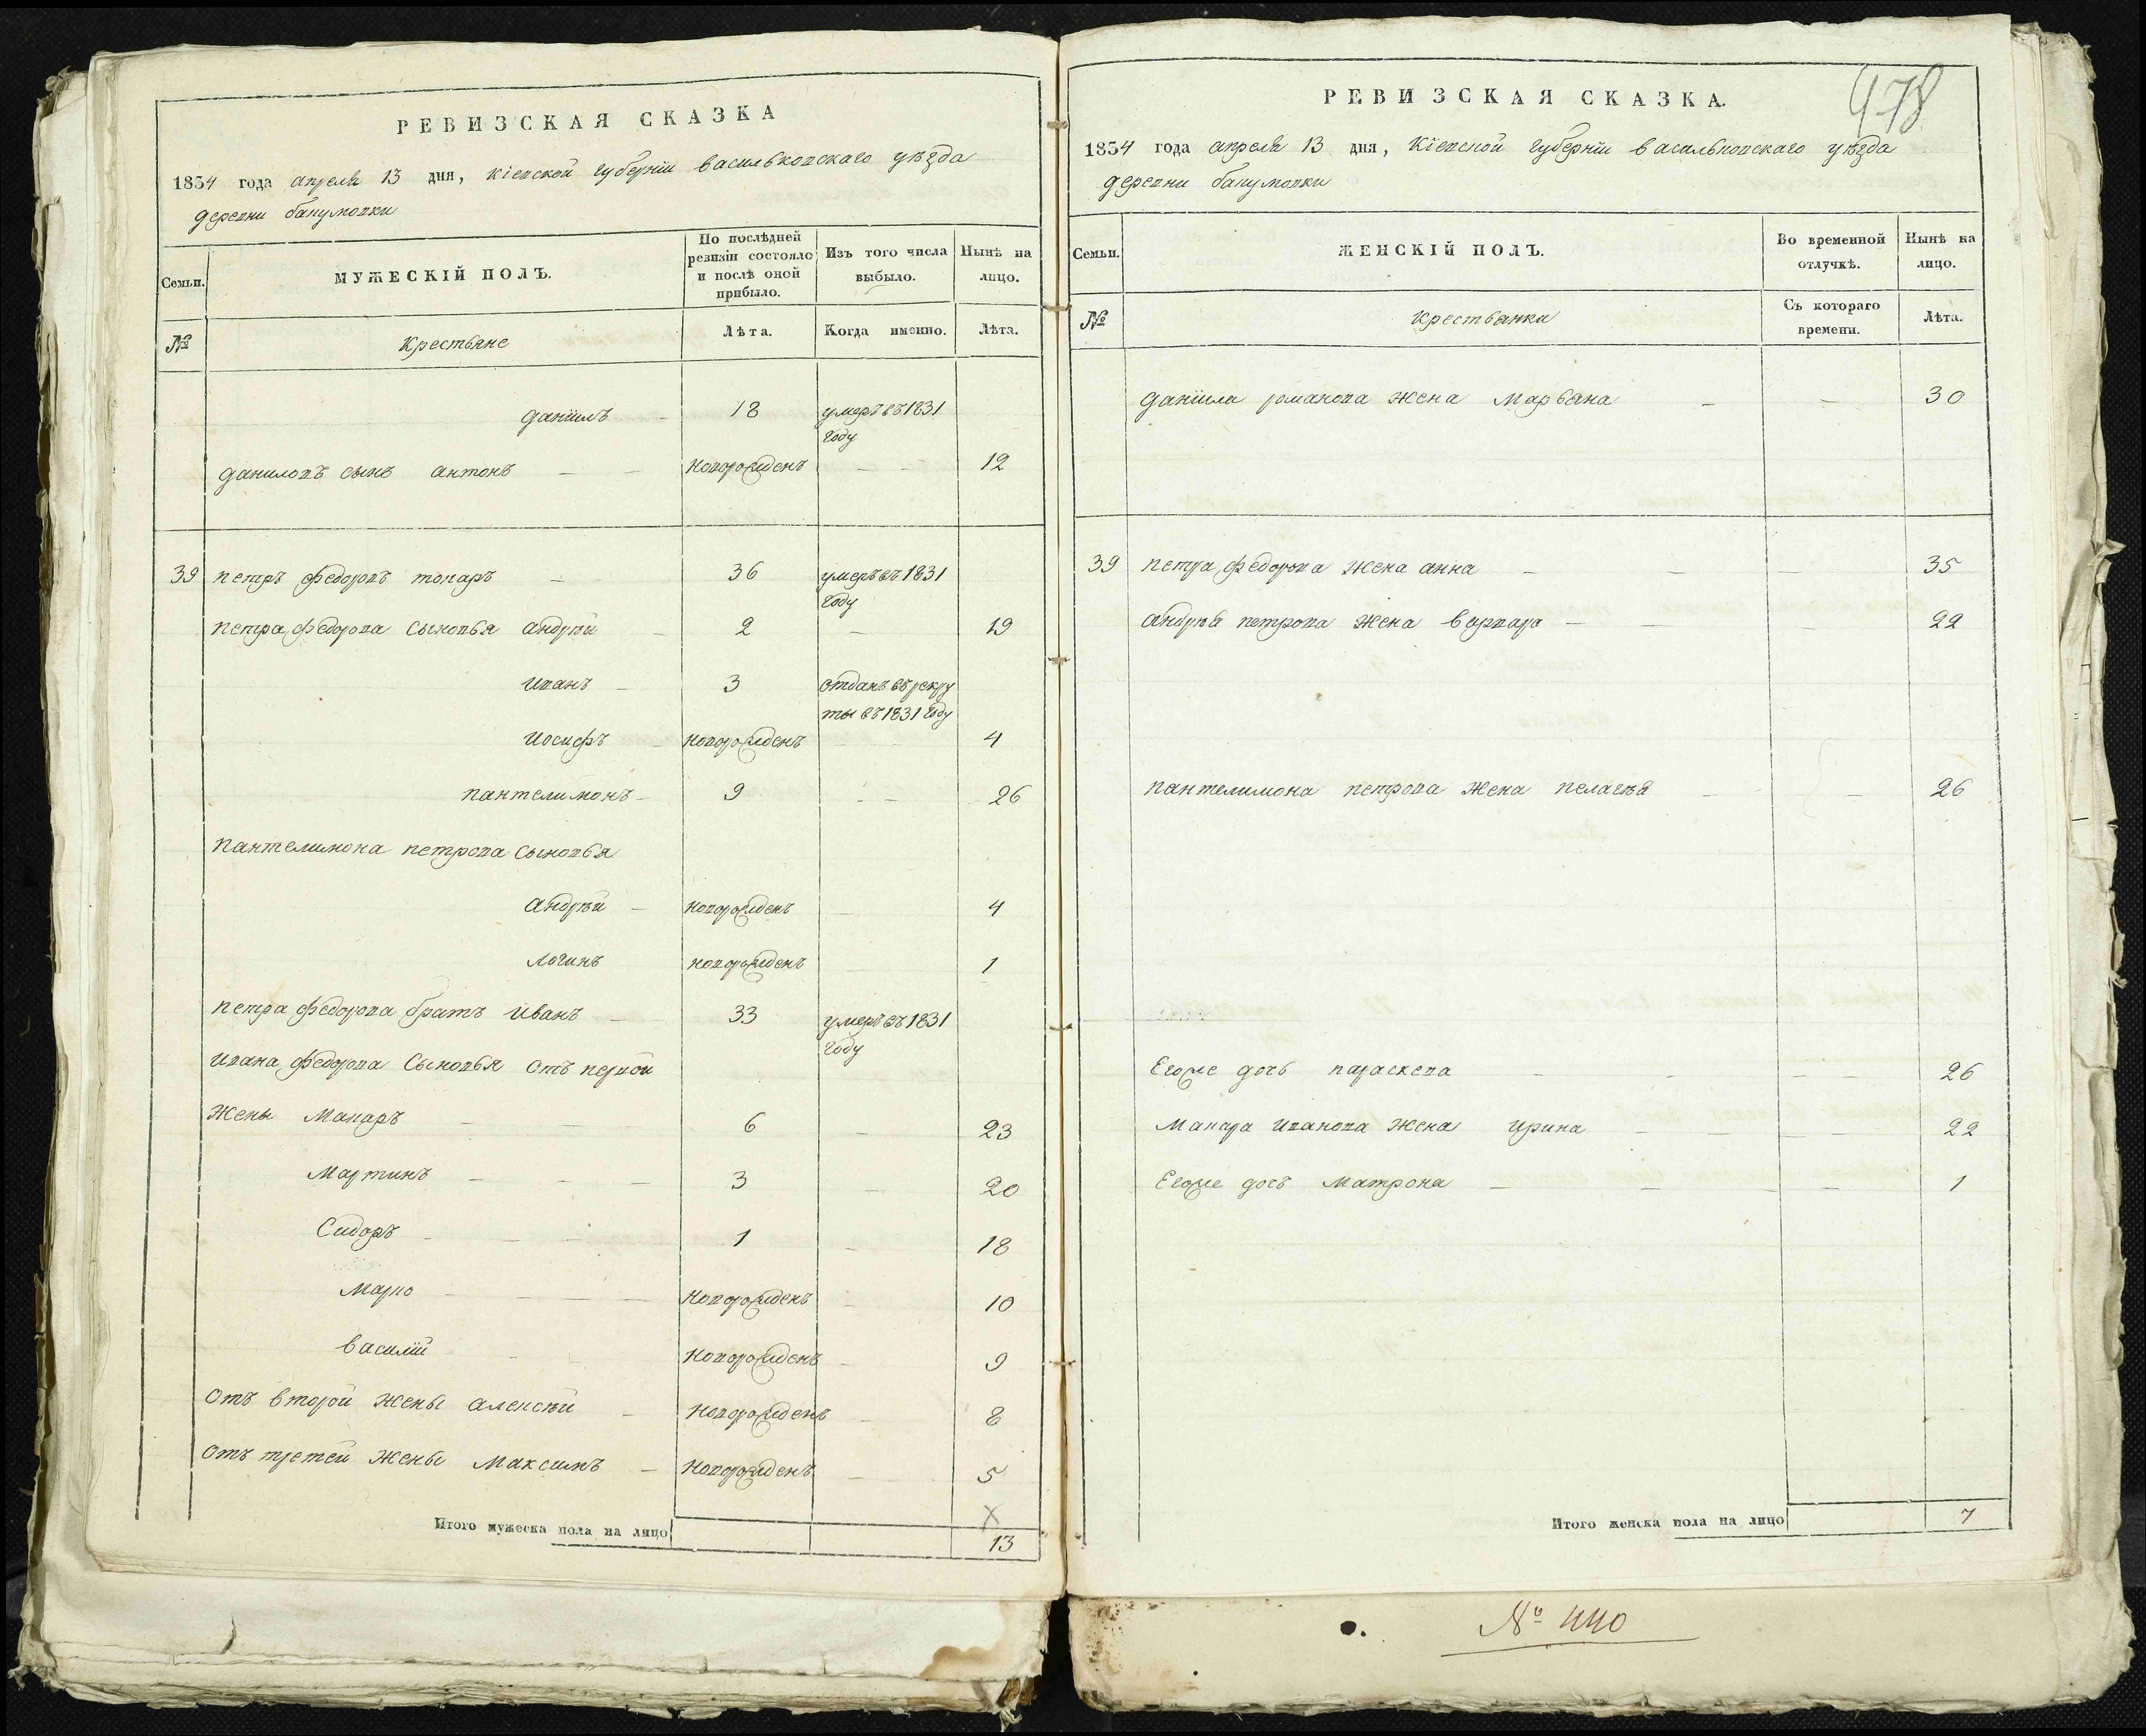 РЕВИЗСКАЯ СКАЗКА
1834 года апреля 13 дня, Кіевской губерніи васильковскаго уѣзда
деревни
Семьи.
МУЖЕСКІЙ ПОЛЪ.
По послѣдней ревизіи состояло и послѣ оной прибыло.
Изъ того числа выбыло.
Нынѣ на лицо.
№
Крестьяне
Лѣта.
Когда именно.
Лѣта.
даніилъ 18 умеръ въ 1831
году
даниловъ сынъ антонъ новорожденъ 12
39 петръ федоровъ 36 умеръ въ 1831
году
петра федорова сыновья андрѣй 2 19
иванъ 3 отданъ въ рекру
ты въ 1831 году
иосифъ новорожденъ 4
пантелимонъ 9 26
пантелимона петрова сыновья
андрѣй новорожденъ 4
логинъ новорожденъ 1
петра федорова братъ иванъ 33 умеръ въ 1831
году
ивана федорова сыновья отъ первой
жены макаръ 6 23
мартинъ 3 20
сидоръ 1 18
марко новорожденъ 10
василій новорожденъ 9
отъ второй жены алексѣй новорожденъ 8
отъ третей жены максимъ новорожденъ 5
X
Итого мужеска пола на лицо 13
478
РЕВИЗСКАЯ СКАЗКА.
1834 года апреля 13 дня, Кіевской губерніи васильковскаго уѣзда
деревни
Семьи.
ЖЕНСКІЙ ПОЛЪ.
Во временной отлучкѣ.
Нынѣ на лицо.
№
Крестьянки
Съ котораго времени.
Лѣта.
даніила романова жена марьяна 30
39 петра федорова жена анна 35
андрѣя петрова жена варвара 22
пантелимона петрова жена пелагѣя 26
Егоже дочь параскева 26
макара иванова жена ирина 22
Егоже дочь матрона 1
Итого женска пола на лицо 7
№ 440